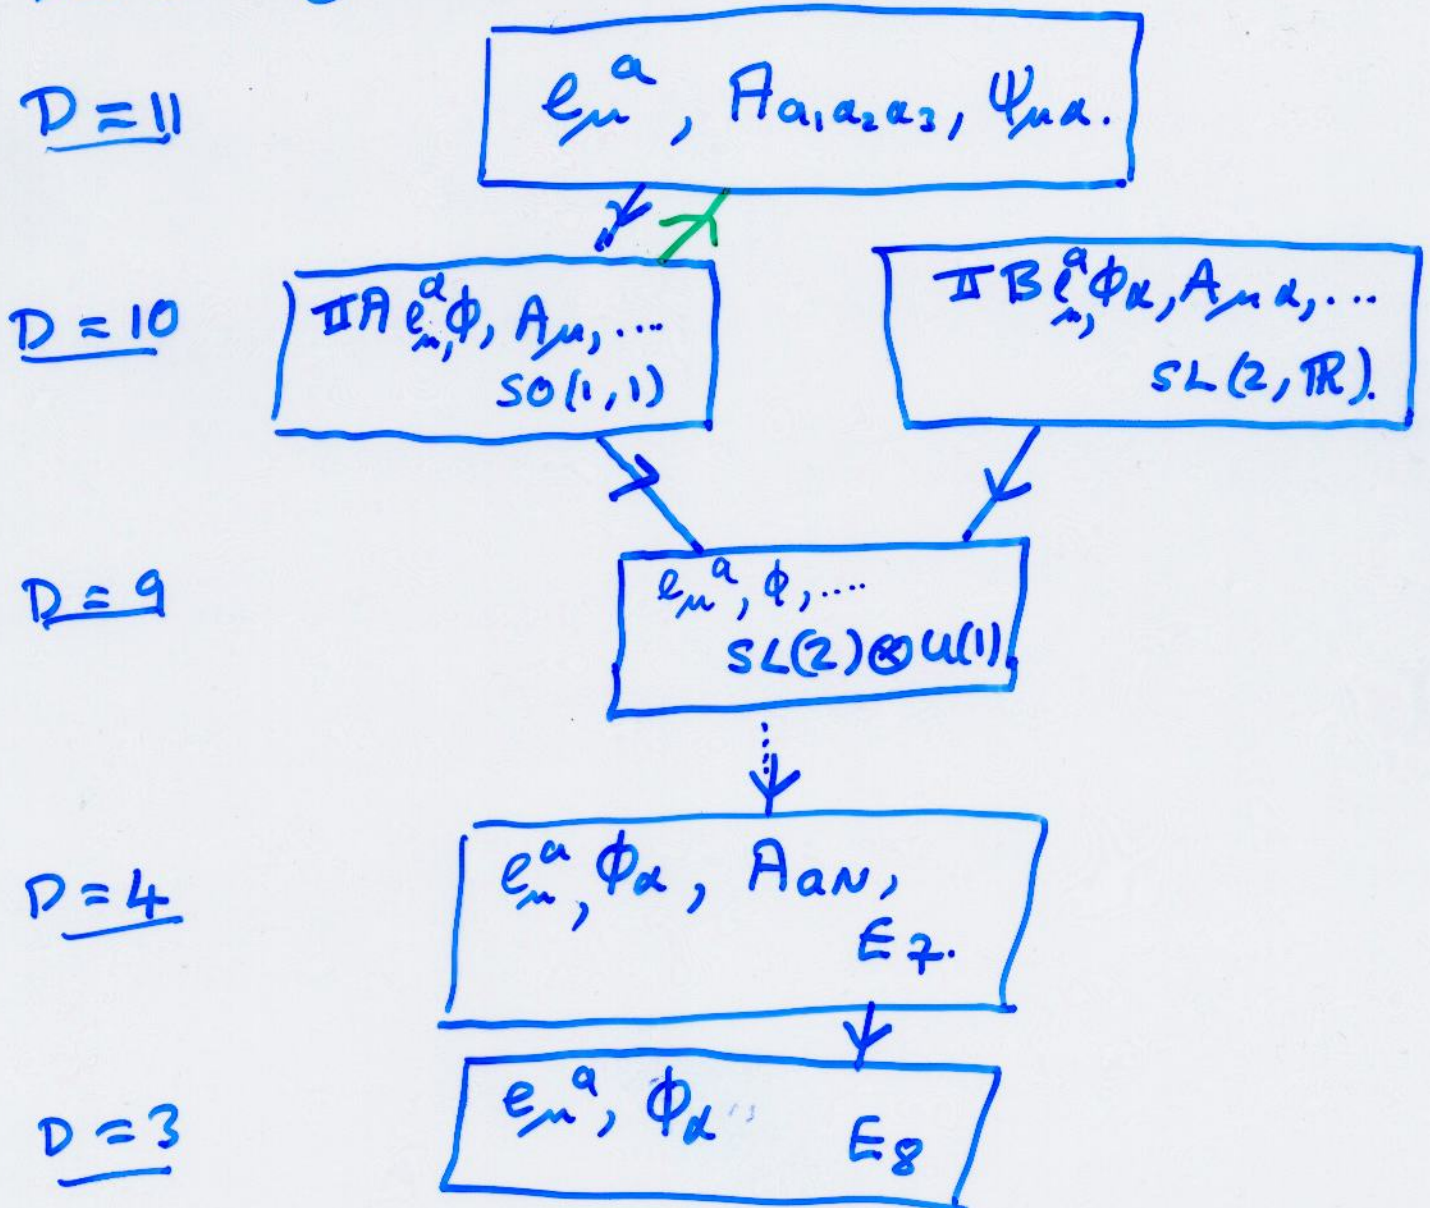 D = 11
e_μ^a, A_{a₁a₂a₃}, ψ_{μα}.
D = 10
IIA e_μ^a, φ, A_μ, ....
SO(1,1)
IIB e_μ^a, φ_α, A_{μα}, ...
SL(2, ℝ).
D = 9
e_μ^a, φ, ....
SL(2)⊗U(1)
D = 4
e_μ^a, φ_α, A_{aN},
E₇.
D = 3
e_μ^a, φ_α
E₈